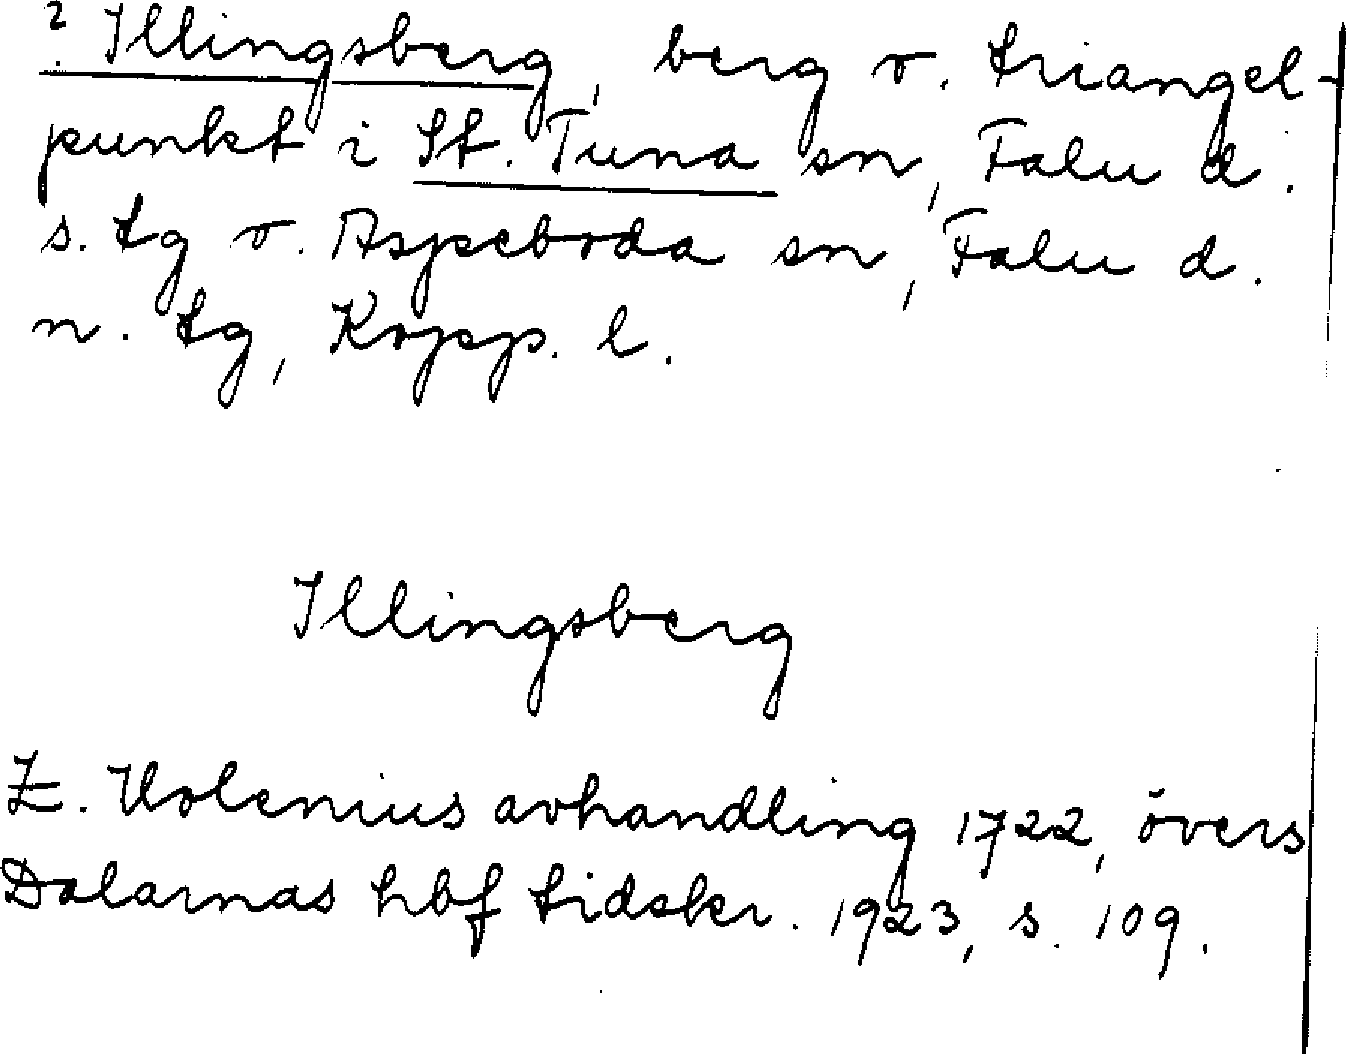 ? Illingsberg, berg o. triangel-
punkt i St. Tuna sn, Falu d.
s. tg o. Aspeboda sn, Falu d.
n. tg, Kopp. l.
Illingsberg
Z. Holenius avhandling 1722, övers
Dalarnas hbf tidskr. 1923, s. 109.